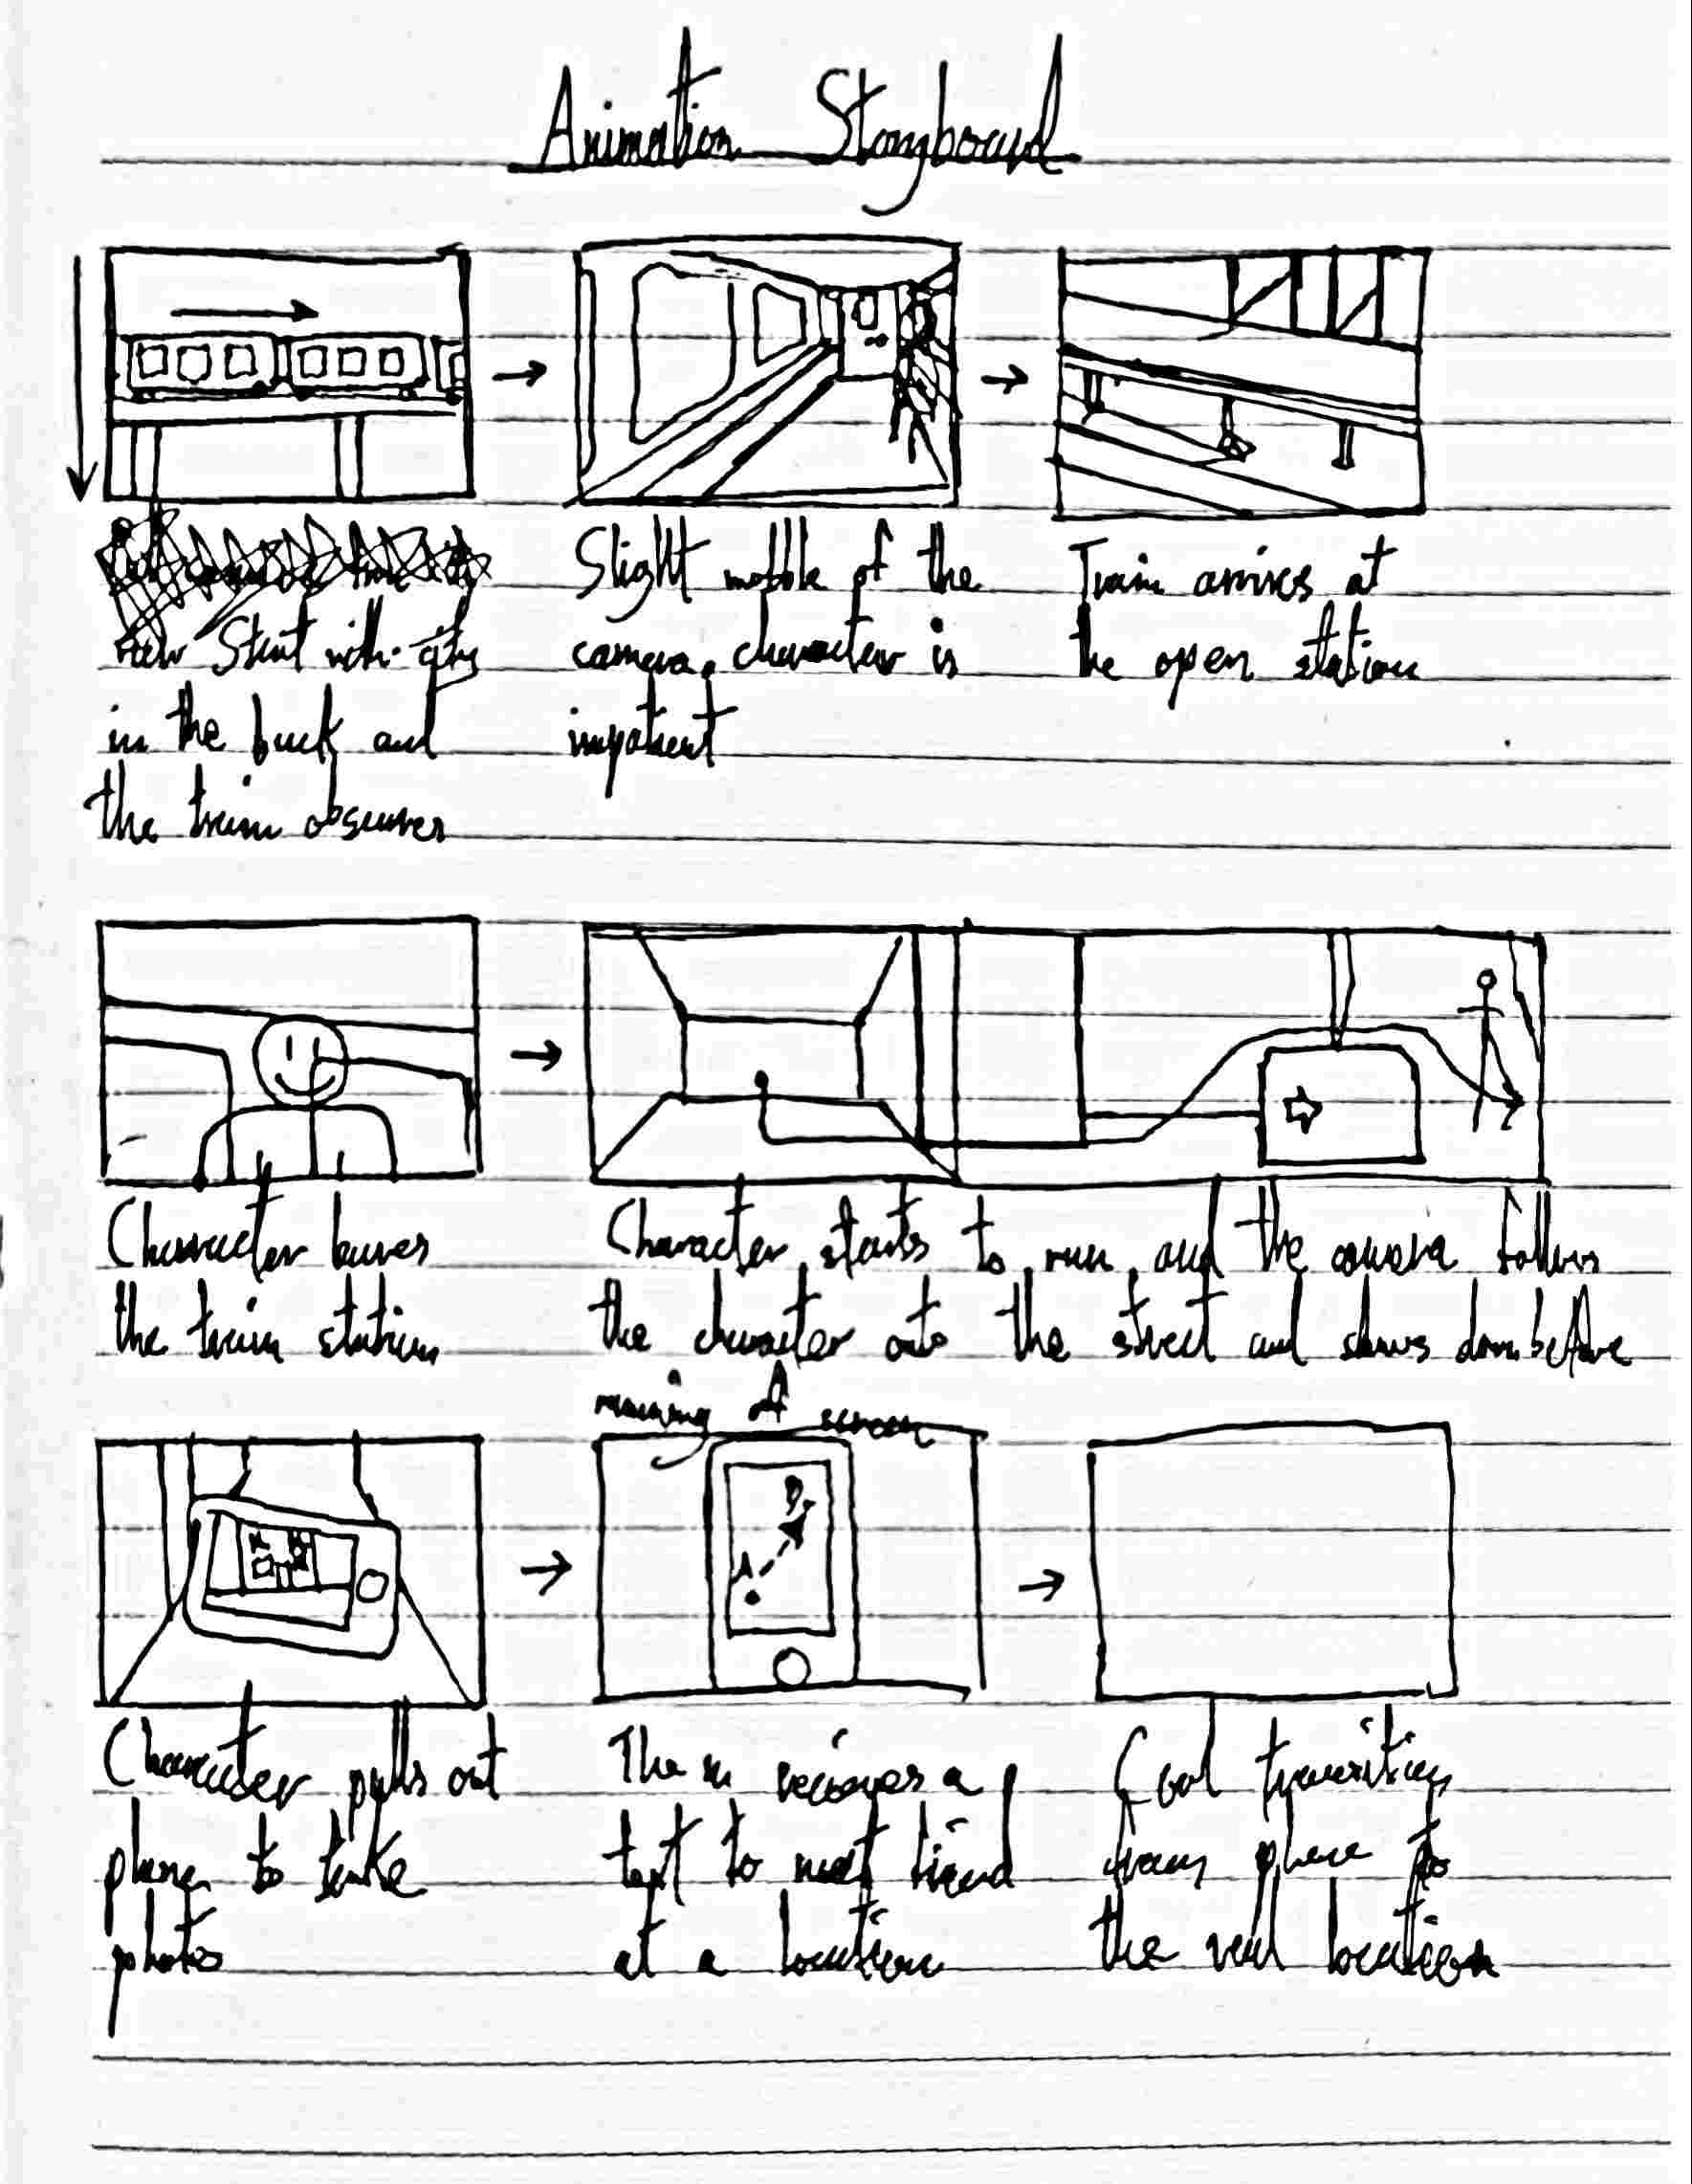 Animation Storyboard
Start with city
in the back and
the train obscures
Slight wobble of the
camera. character is
impatient
Train arrives at
the open station
Character leaves
the train station
Character starts to run, and the camera follows
the character onto the street and slows down before
running off screen
A
B
Character pulls out
phone to take
photos
Then recieves a
text to meet friend
at a location
Cool transition
from phone to
the real location